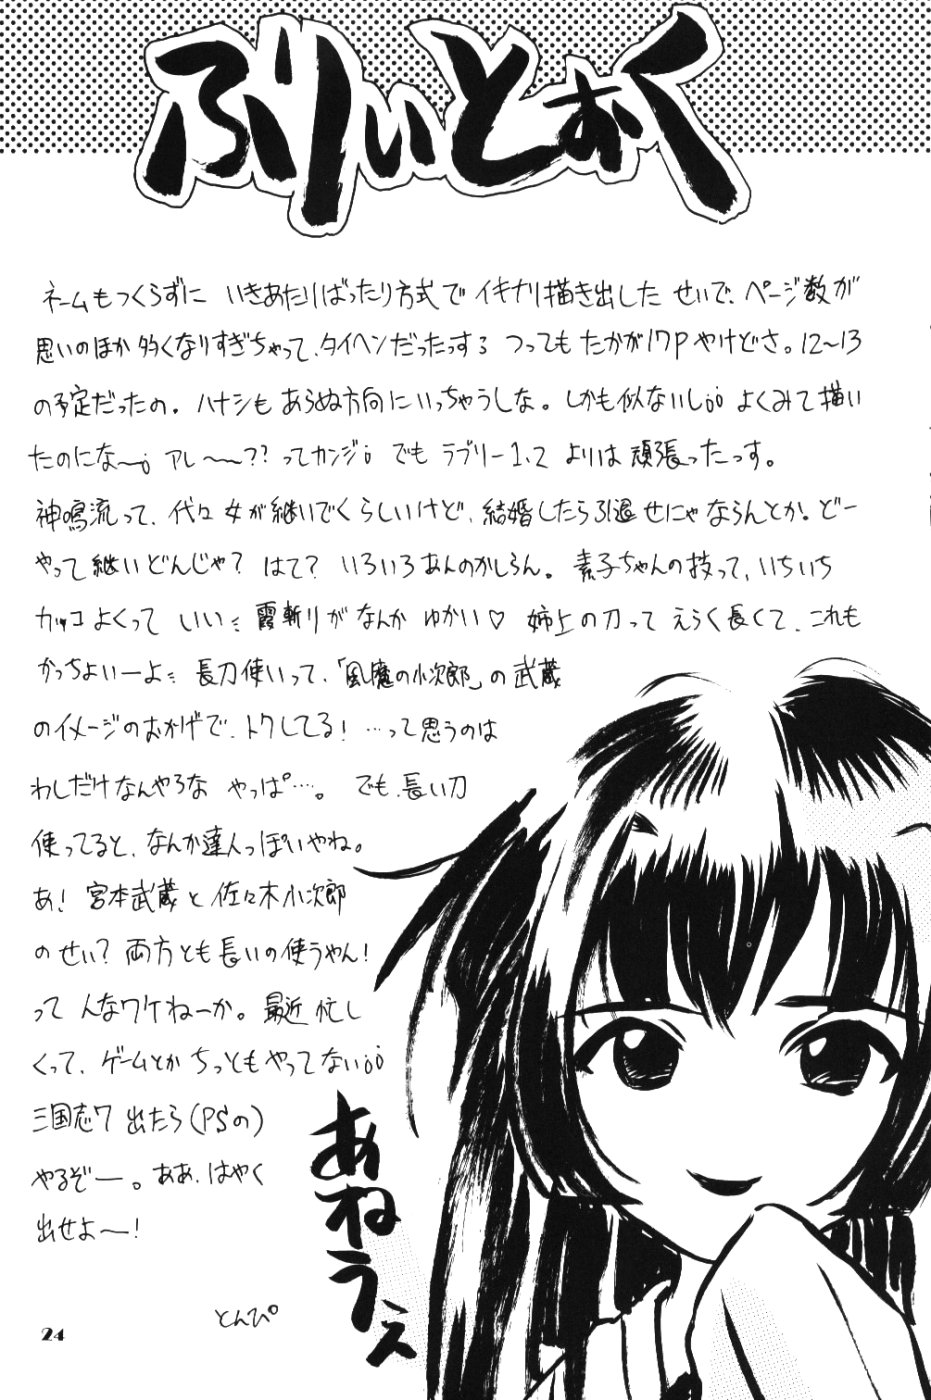 ふりいとおく
ネームもつくらずに いきあたりばったり方式で イキナリ描き出した せいで、ページ数が
思いのほか多くなりすぎちゃって、タイヘンだったっする つってもたかが17Pやけどさ。12〜13
の予定だったの。ハナシも あらぬ方向にいっちゃうしな。しかも似ないし。。よくみて描い
たのにな〜。アレ〜〜??ってカンジ。でも ラブリー1、2 よりは 頑張ったっす。
神鳴流って、代々女が継いでくらしいけど、結婚したら引退せにゃならんとか。どー
やって継いどんじゃ? はて? いろいろあんのかしらん。素子ちゃんの技って、いちいち
カッコよくって いいミ 霞斬りがなんか ゆかい♡ 姉上の刀って えらく長くて、これも
かっちょいーよミ 長刀使いって、「風魔の小次郎」の武蔵
のイメージのおかげで、トクしてる! …って思うのは
わしだけなんやろな やっぱ…。でも、長い刀
使ってると、なんか達人っぽいやね。
あ! 宮本武蔵と佐々木小次郎
のせい? 両方とも長いの使うやん!
って んなワケねーか。最近 忙し
くって、ゲームとか ちっともやってない。。
三国志7 出たら(PSの)
やるぞー。ああ、はやく
出せよ〜!
とんぴ
あねうえ
24